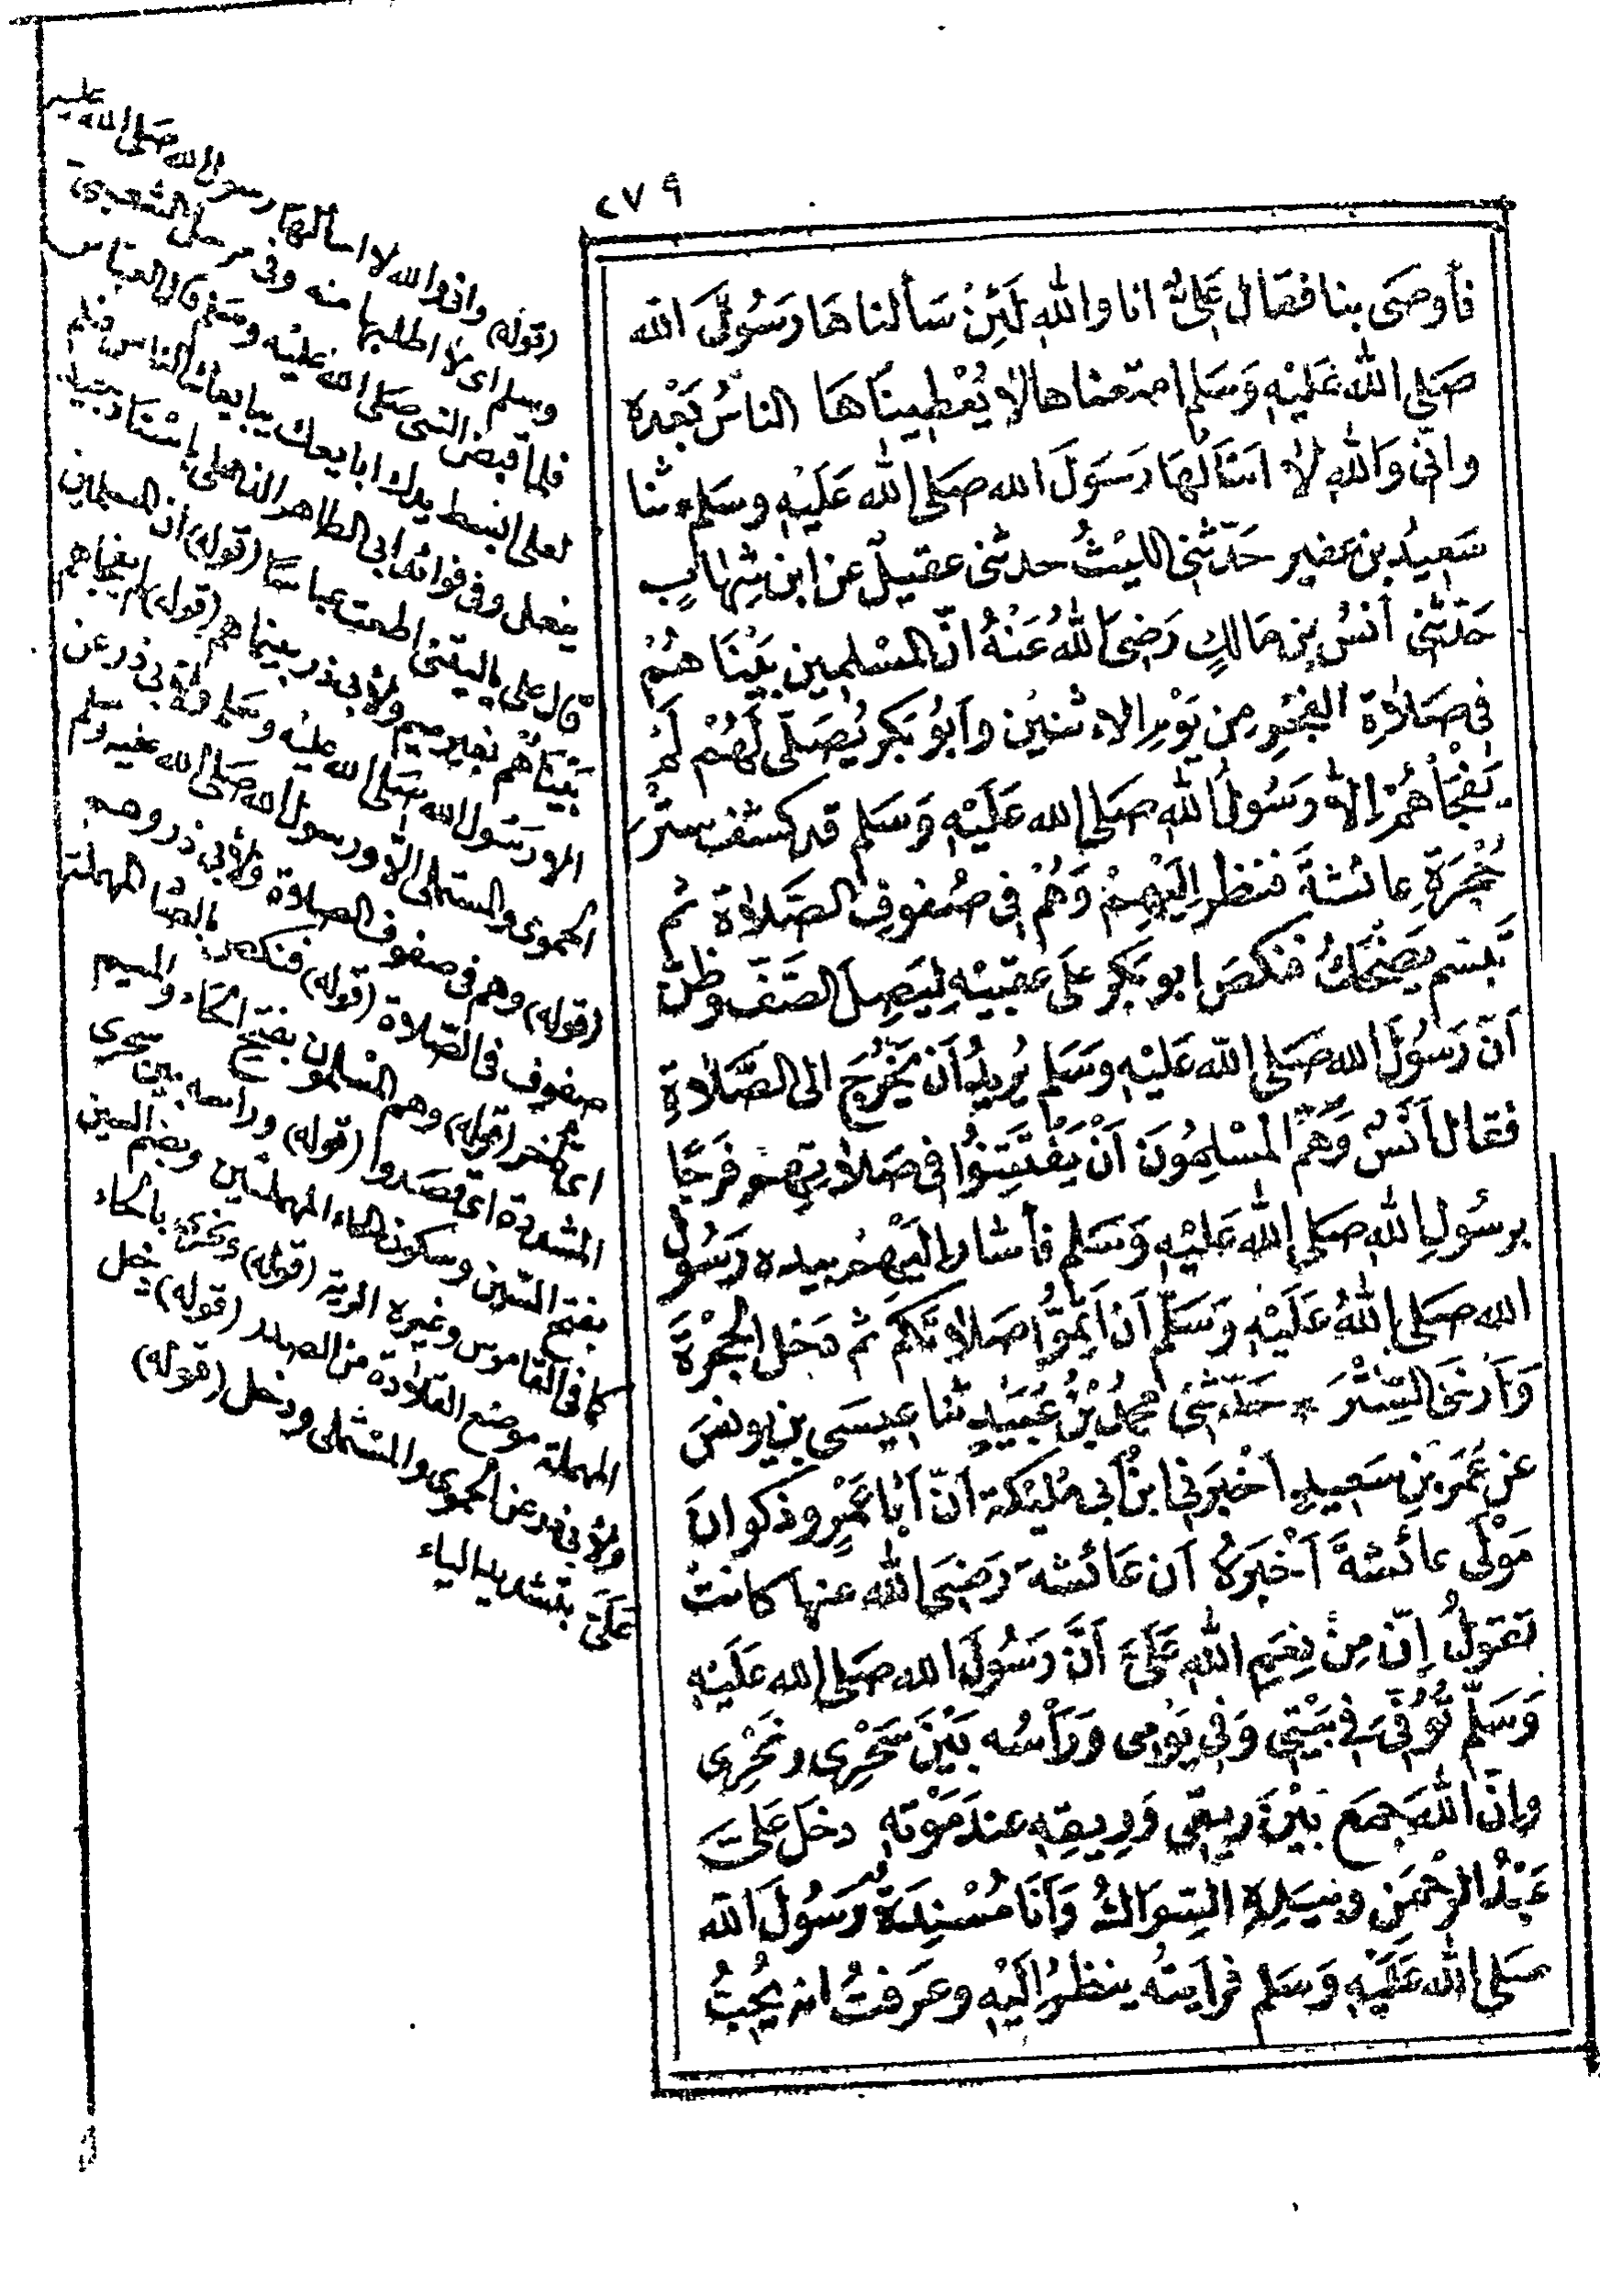 ٢٧٩
فأوصى بنا فقال عَلِيٌّ انا واللهِ لَئِنْ سَألناهَا رَسُولَ الله
صَلى اللهُ عَلَيْهِ وَسَلم فمنعناها لا يُعْطِينَاهَا الناسُ بَعْدَه
وانى وَاللهِ لا اَسْاَلُهَا رَسَولَ الله صَلى الله عَلَيْهِ وسَلم * ثنا
سَعِيدُ بن عفير حَدّثنى الليْثُ حدثنى عقيلٌ عن ابن شِهَابٍ
حَدّثنى أنسُ بن مَالكٍ رَضِىَ اللهُ عَنْهُ انّ المسْلِمِين بَيْنَا هُمْ
فى صَلاةِ الفَجْرِ مِن يَوْمِ الاثنيْن وأبُو بَكر يُصَلِّى لَهُمْ لَمْ
يَفْجَأهُمْ إلا رَسُولُ اللهِ صَلى الله عَلَيْهِ وَسَلم قد كشف سِتْرَ
حُجْرَةِ عائشةَ فنظر اِلَيْهِمْ وَهُمْ فى صُفوفِ الصَّلاة ثم
تَبَسّم يَضْحَكُ فنكصَ ابو بَكر عَلى عقبيْهِ لِيَصِلَ الصَّفَّ وظنّ
اَنّ رَسُولَ الله صَلى الله عَلَيْهِ وَسَلم يُرِيدُ اَن يَخْرُجَ الى الصَّلاةِ
فقال اَنَسٌ وَهَمَّ المسْلِمُونَ اَنْ يَفْتَتِنُوا فى صَلاتِهِمْ فَرَحًا
برسُولِ اللهِ صَلى اللهُ عَلَيْهِ وَسَلم فأشار اليْهِمْ بيده رَسُولُ
الله صَلى اللهُ عَلَيْهِ وَسَلَّم اَن اَتِمُّوا صَلاتكم ثم دَخل الحُجْرَةَ
وَأرخَى السِّتْرَ * حَدّثنى محمدُ بْنُ عُبَيْدٍ ثنا عِيسَى بن يونسَ
عن عُمَرَ بنِ سَعِيدٍ اَخْبَرَنى ابنُ أبى مُلَيْكة اَنّ أبَا عَمْرٍو ذكوانَ
مَوْلَى عائشةَ اَخْبَرَهُ اَن عَائشةَ رَضِىَ الله عنها كانتْ
تقولُ اِنّ مِنْ نِعَمِ اللهِ عَلَىَّ اَنَّ رَسُولَ الله صَلى الله عَلَيْهِ
وَسَلَّم تُوُفِّىَ فى بَيْتِى وَفى يَوْمِى وَرَأْسُه بَيْنَ سَحْرِى ونَحْرِى
وانّ اللهَ جَمَعَ بَيْنَ رِيقِى وَرِيقِهِ عند مَوْتِهِ دخَلَ عَلَىّ
عَبْدُ الرَّحْمَنِ وبِيَدِهِ السِّوَاكُ وَأنَا مُسْنِدَةٌ رَسُولَ الله
صَلى الله عَلَيْهِ وَسَلم فرأيتهُ ينظرُ اليْهِ وعَرَفتُ انه يُحِبُّ
(قوله) وانى والله لا اسألها رسول الله صَلى الله عليه
وسلم اى لا اطلبها منه وفى مرسل الشعبى
فلما قبض النبى صَلى الله عليْه وسَلم قال العبّاس
لعلى ابسط يدك ابايعك يبايعك الناس فلم
يفعل وفى فوائد ابى الطاهر الذهلى باسْنَاد جيد
قال على ياليتنى اطعت عباسًا (قوله) انّ المسلمين
بَيْنَاهُم بغير ميم ولأبى ذر بينماهم (قوله) لم يفجأهم
الا رسُول الله صَلى الله عليْه وسَلم ولأبى ذر عن
الحموى والمستملى الا ورسول الله صَلى الله عليه وسلم
(قوله) وهم فى صفوف الصلاة ولأبى ذر وهم
صفوف فى الصّلاة (قوله) فنكص بالصّاد المهملة
اى تأخر (قوله) وهم المسْلمون بفتح الهاء والميم
المشددة اى قصدوا (قوله) ورأسه بين سحرى
بفتح السّين وسكون الحاء المهملتين وبضم السين
كما فى القاموس وغيره الرية (قوله) ونحرى بالحاء
المهملة موضع القلادة من الصدر (قوله) دخل
ولأبى ذر عن الحموى والمستملى ودخل (قوله)
عَلىّ بتشديد الياء